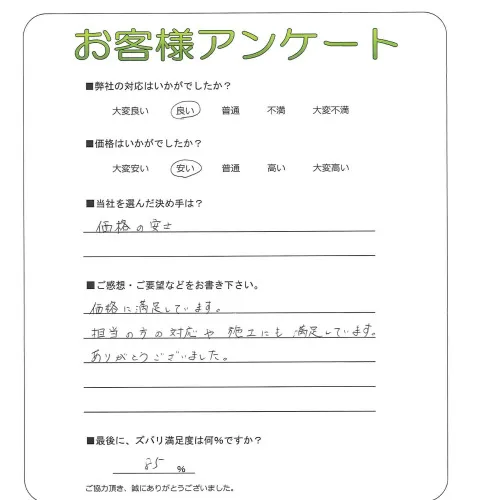 お客様アンケート
■弊社の対応はいかがでしたか？
大変良い 良い 普通 不満 大変不満
■価格はいかがでしたか？
大変安い 安い 普通 高い 大変高い
■当社を選んだ決め手は？
価格の安さ
■ご感想・ご要望などをお書き下さい。
価格に満足しています。
担当の方の対応や施工にも満足しています。
ありがとうございました。
■最後に、ズバリ満足度は何%ですか？
85 %
ご協力頂き、誠にありがとうございました。